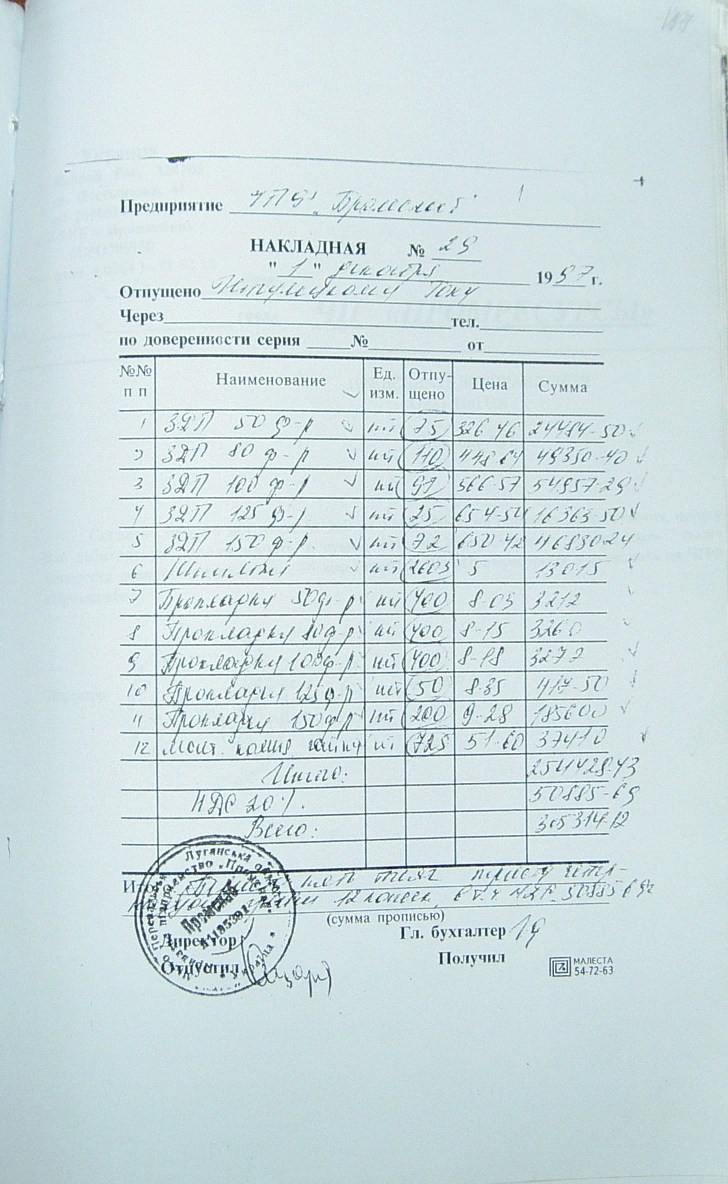 Предприятие ЧПФ "
НАКЛАДНАЯ № 29
" 1 " декабря 1997 г.
Отпущено
Через тел.
по доверенности серия № от
№№ п п Наименование Ед. изм. Отпущено Цена Сумма
1 ЗДП 50 ф-р шт 75 326 46 24484-50
2 ЗДП 80 ф-р шт 110 448 64 49350-40
3 ЗДП 100 ф-р шт 97 566-57 54957-29
4 ЗДП 125 ф-р шт 25 654-54 16363-50
5 ЗДП 150 ф-р шт 72 650-42 46830 24
6 шт 2603 5 13015
7 Прокладка 50 ф-р шт 400 8-03 3212
8 Прокладка 80 ф-р шт 400 8-15 3260
9 Прокладка 100 ф-р шт 400 8-18 3272
10 Прокладка 125 ф-р шт 50 8-35 417-50
11 Прокладка 150 ф-р шт 200 9-28 1856 00
12 шт 725 51-60 37410
Итого: 254428-43
НДС 20% 50885-69
Всего: 305314-12
пять тысяч триста четыр-
12 копеек, в т.ч. НДС 50885 69
(сумма прописью)
Директор Гл. бухгалтер
Отпустил Получил
МАЛЕСТА
54-72-63
Луганська